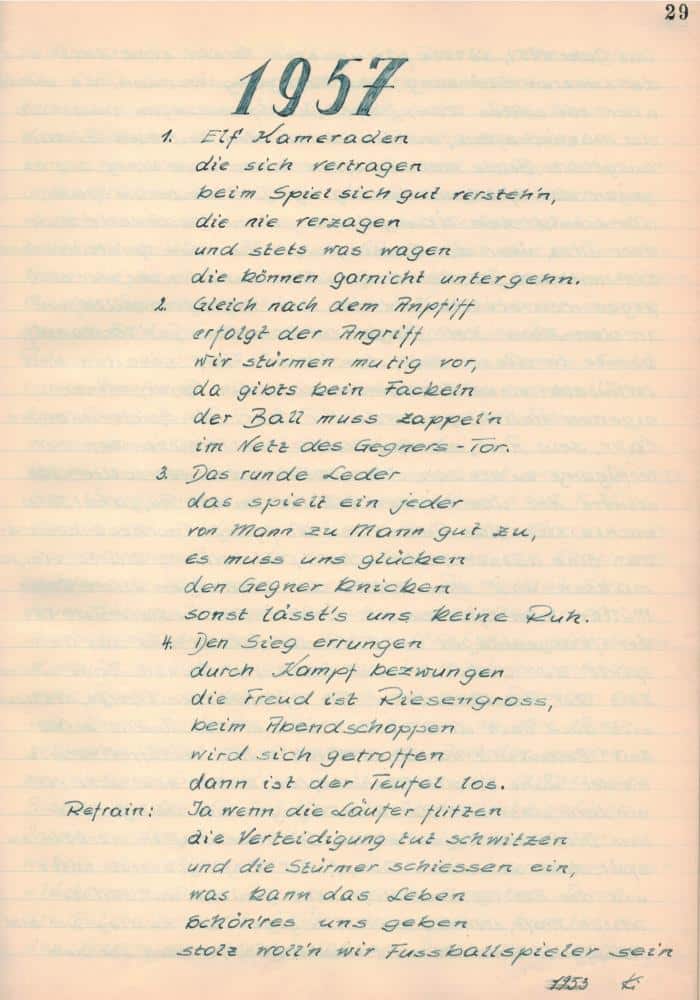 29
1957
1. Elf Kameraden
die sich vertragen
beim Spiel sich gut versteh'n,
die nie verzagen
und stets was wagen
die können garnicht untergehn.
2. Gleich nach dem Anpfiff
erfolgt der Angriff
wir stürmen mutig vor,
da gibts kein Fackeln
der Ball muss zappel'n
im Netz des Gegners-Tor.
3. Das runde Leder
das spielt ein jeder
von Mann zu Mann gut zu,
es muss uns glücken
den Gegner knicken
sonst lässt's uns keine Ruh.
4. Den Sieg errungen
durch Kampf bezwungen
die Freud ist Riesengross,
beim Abendschoppen
wird sich getroffen
dann ist der Teufel los.
Refrain: Ja wenn die Läufer flitzen
die Verteidigung tut schwitzen
und die Stürmer schiessen ein,
was kann das Leben
schön'res uns geben
stolz woll'n wir Fussballspieler sein
1953 K